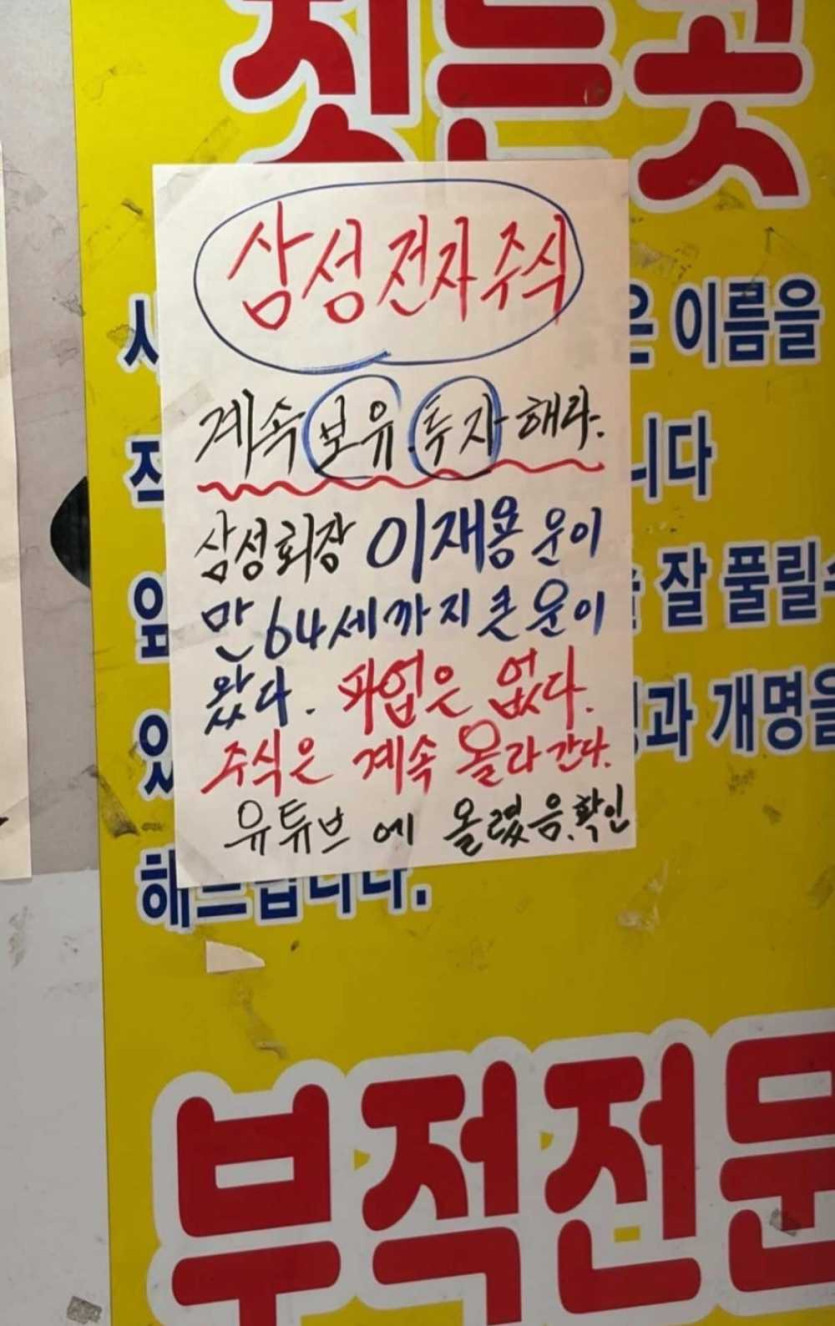 짓는곳
삼성전자주식
은 이름을
계속 보유 투자해라.
니다
삼성회장 이재용 운이
잘 풀릴수
만 64세까지 큰 운이
왔다. 파업은 없다.
과 개명을
있
주식은 계속 올라간다.
유튜브에 올렸음.확인
해드립니다.
부적전문